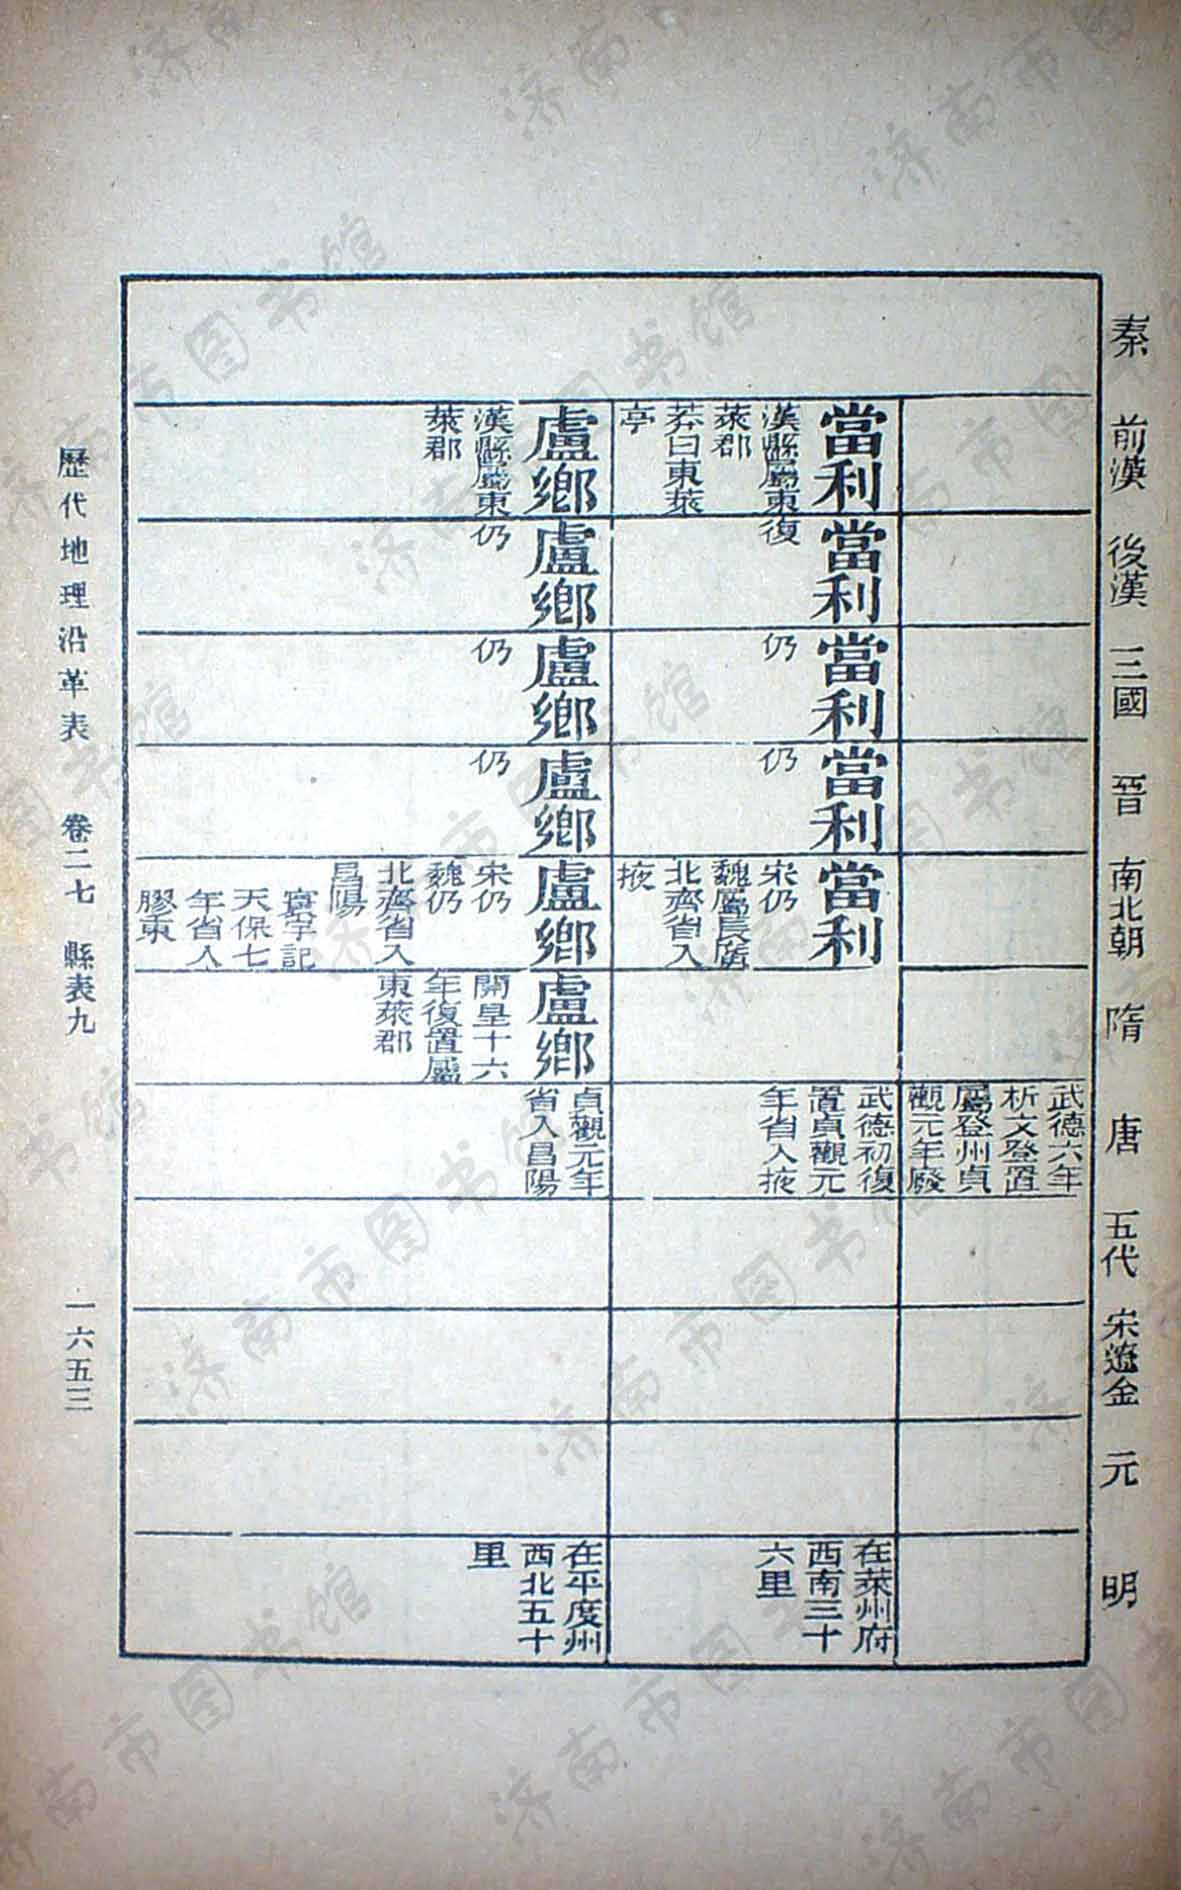 秦
前漢
後漢
三國
晉
南北朝
隋
唐
五代
宋遼金
元
明
武德六年
析文登置
屬登州貞
觀元年廢
當利
漢縣屬東
萊郡
莽曰東萊
亭
當利
復
當利
仍
當利
仍
當利
宋仍
魏屬長廣
北齊省入
掖
武德初復
置貞觀元
年省入掖
在萊州府
西南三十
六里
盧鄉
漢縣屬東
萊郡
盧鄉
仍
盧鄉
仍
盧鄉
仍
盧鄉
宋仍
魏仍
北齊省入
昌陽
寰宇記
天保七
年省入
膠東
盧鄉
開皇十六
年復置屬
東萊郡
貞觀元年
省入昌陽
在平度州
西北五十
里
歷代地理沿革表 卷二七 縣表九 一六五三
济南市图书馆